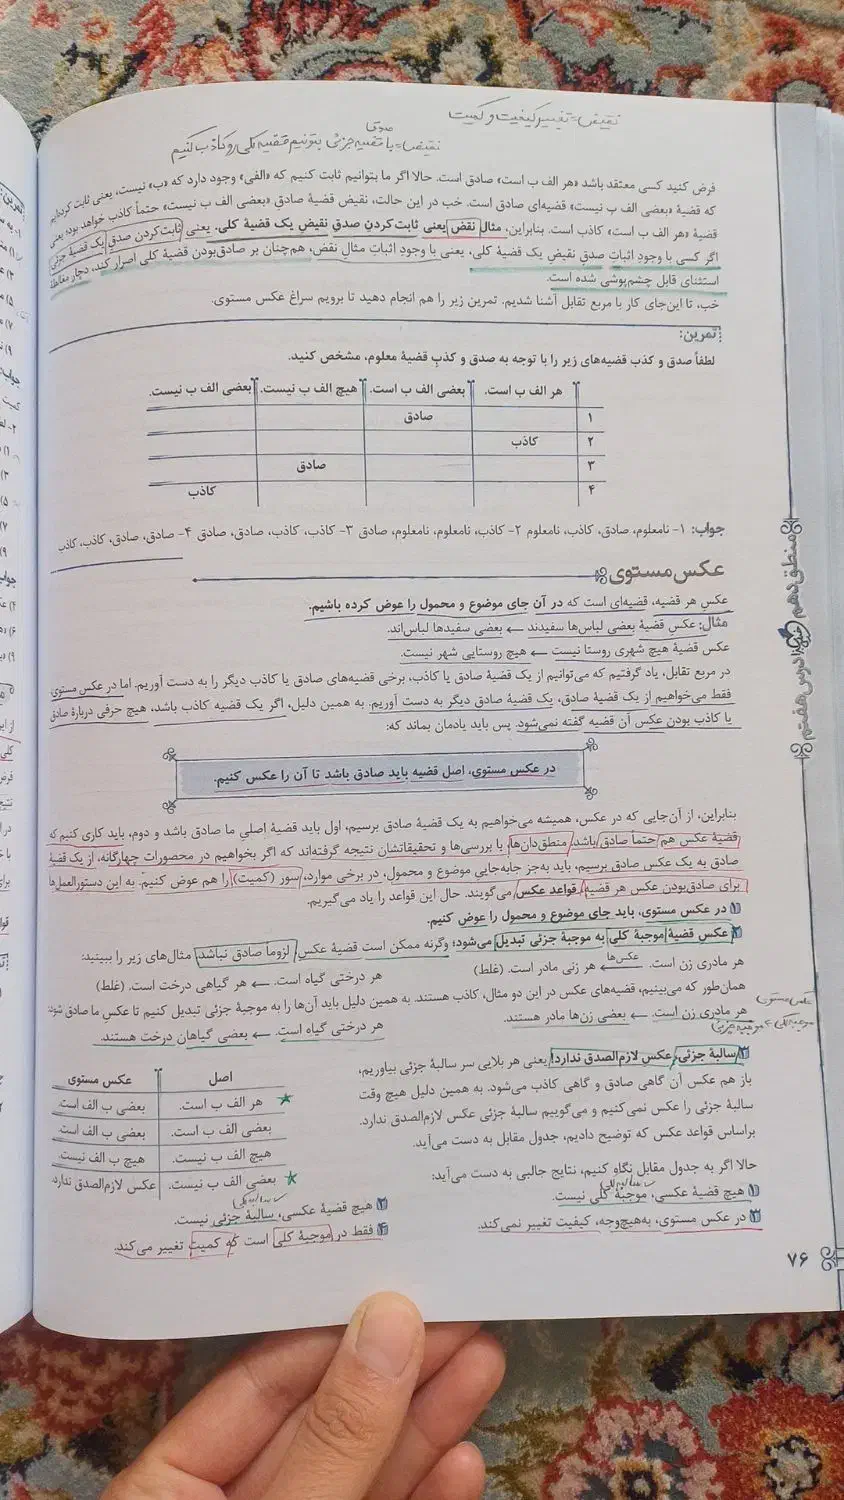 نقیض = تغییر کیفیت و کمیت
نقیض = با قضیه جزئی صادق بتونیم قضیه کلی رو کاذب کنیم
فرض کنید کسی معتقد باشد «هر الف ب است» صادق است. حالا اگر ما بتوانیم ثابت کنیم که «الفی» وجود دارد که «ب» نیست، یعنی ثابت کرده‌ایم
که قضیهٔ «بعضی الف ب نیست» قضیه‌ای صادق است. خب در این حالت، نقیض قضیهٔ صادق «بعضی الف ب نیست» حتماً کاذب خواهد بود؛ یعنی
قضیهٔ «هر الف ب است» کاذب است. بنابراین، مثال نقض یعنی ثابت‌کردنِ صدقِ نقیضِ یک قضیهٔ کلی. یعنی ثابت‌کردن صدقِ یک قضیهٔ جزئی
اگر کسی با وجودِ اثباتِ صدقِ نقیضِ یک قضیهٔ کلی، یعنی با وجودِ اثباتِ مثالِ نقض، هم‌چنان بر صادق‌بودن قضیهٔ کلی اصرار کند، دچار مغالطهٔ
استثنای قابل چشم‌پوشی شده است.
خب، تا این‌جای کار با مربع تقابل آشنا شدیم. تمرین زیر را هم انجام دهید تا برویم سراغ عکس مستوی.
تمرین:
لطفاً صدق و کذب قضیه‌های زیر را با توجه به صدق و کذبِ قضیهٔ معلوم، مشخص کنید.
هر الف ب است. بعضی الف ب است. هیچ الف ب نیست. بعضی الف ب نیست.
۱ صادق
۲ کاذب
۳ صادق
۴ کاذب
جواب: ۱- نامعلوم، صادق، کاذب، نامعلوم ۲- کاذب، نامعلوم، نامعلوم، صادق ۳- کاذب، کاذب، صادق، صادق ۴- صادق، صادق، کاذب، کاذب
عکس مستوی
عکسِ هر قضیه، قضیه‌ای است که در آن جای موضوع و محمول را عوض کرده باشیم.
مثال: عکس قضیهٔ بعضی لباس‌ها سفیدند ← بعضی سفیدها لباس‌اند.
عکس قضیهٔ هیچ شهری روستا نیست ← هیچ روستایی شهر نیست.
در مربع تقابل، یاد گرفتیم که می‌توانیم از یک قضیهٔ صادق یا کاذب، برخی قضیه‌های صادق یا کاذب دیگر را به دست آوریم. اما در عکس مستوی،
فقط می‌خواهیم از یک قضیهٔ صادق، یک قضیهٔ صادق دیگر به دست آوریم. به همین دلیل، اگر یک قضیه کاذب باشد، هیچ حرفی دربارهٔ صادق
یا کاذب بودن عکس آن قضیه گفته نمی‌شود. پس باید یادمان بماند که:
در عکس مستوی، اصل قضیه باید صادق باشد تا آن را عکس کنیم.
بنابراین، از آن‌جایی که در عکس، همیشه می‌خواهیم به یک قضیهٔ صادق برسیم، اول باید قضیهٔ اصلیِ ما صادق باشد و دوم، باید کاری کنیم که
قضیهٔ عکس هم حتماً صادق باشد. منطق‌دان‌ها، با بررسی‌ها و تحقیقاتشان نتیجه گرفته‌اند که اگر بخواهیم در محصورات چهارگانه، از یک قضیهٔ
صادق به یک عکس صادق برسیم، باید به‌جز جابه‌جایی موضوع و محمول، در برخی موارد، سور (کمیت) را هم عوض کنیم. به این دستورالعمل‌ها
برای صادق‌بودن عکس هر قضیه، قواعد عکس می‌گویند. حال این قواعد را یاد می‌گیریم.
۱ در عکس مستوی، باید جای موضوع و محمول را عوض کنیم.
۲ عکس قضیهٔ موجبهٔ کلی به موجبهٔ جزئی تبدیل می‌شود؛ وگرنه ممکن است قضیهٔ عکس، لزوماً صادق نباشد، مثال‌های زیر را ببینید:
هر مادری زن است. ← عکس‌ها هر زنی مادر است. (غلط) هر درختی گیاه است. ← هر گیاهی درخت است. (غلط)
همان‌طور که می‌بینیم، قضیه‌های عکس در این دو مثال، کاذب هستند. به همین دلیل باید آن‌ها را به موجبهٔ جزئی تبدیل کنیم تا عکسِ ما صادق شود:
هر مادری زن است. ← بعضی زن‌ها مادر هستند. هر درختی گیاه است. ← بعضی گیاهان درخت هستند.
عکس مستوی
موجبه کلی = موجبه جزئی
۳ سالبهٔ جزئی، عکس لازم‌الصدق ندارد! یعنی هر بلایی سر سالبهٔ جزئی بیاوریم،
باز هم عکس آن گاهی صادق و گاهی کاذب می‌شود. به همین دلیل هیچ وقت
سالبهٔ جزئی را عکس نمی‌کنیم و می‌گوییم سالبهٔ جزئی عکس لازم‌الصدق ندارد.
براساس قواعد عکس که توضیح دادیم، جدول مقابل به دست می‌آید.
اصل عکس مستوی
هر الف ب است. بعضی ب الف است.
بعضی الف ب است. بعضی ب الف است.
هیچ الف ب نیست. هیچ ب الف نیست.
بعضی الف ب نیست. عکس لازم‌الصدق ندارد.
حالا اگر به جدول مقابل نگاه کنیم، نتایج جالبی به دست می‌آید:
۱ هیچ قضیهٔ عکسی، موجبهٔ کلی نیست.
۲ هیچ قضیهٔ عکسی، سالبهٔ جزئی نیست.
۳ در عکس مستوی، به‌هیچ‌وجه، کیفیت تغییر نمی‌کند.
۴ فقط در موجبهٔ کلی است که کمیت تغییر می‌کند.
۷۶
منطق دهم
درس هفتم